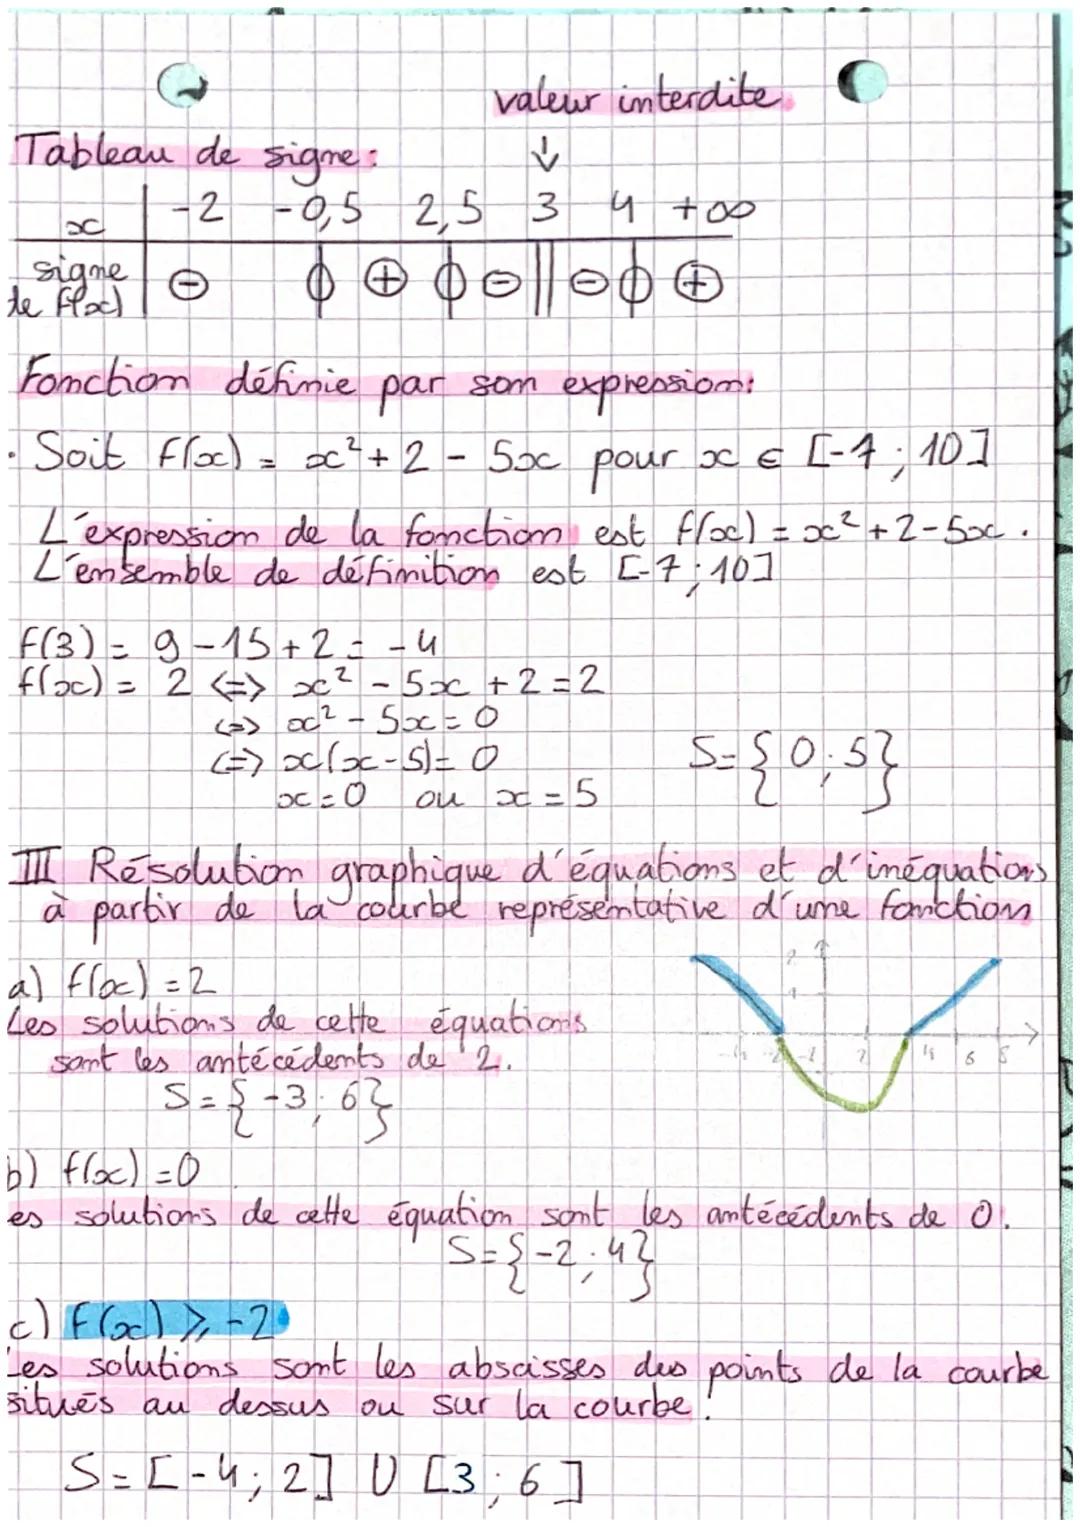 valeur interdite.
Tableau de signe:
↓
x -2 -0,5 2,5 3 4 +∞
signe
de f(x) ⊖ ⊕ ⊖ || ⊖ ⊕
Fonction définie par son expression:
· Soit f(x) = x² + 2 - 5x pour x ∈ [-7 ; 10]
L'expression de la fonction est f(x) = x² + 2 - 5x.
L'ensemble de définition est [-7 ; 10]
f(3) = 9 - 15 + 2 = -4
f(x) = 2 <=> x² - 5x + 2 = 2
<=> x² - 5x = 0
<=> x(x-5) = 0 S = { 0 ; 5 }
x = 0 ou x = 5
III Résolution graphique d'équations et d'inéquations
à partir de la courbe représentative d'une fonction
a) f(x) = 2
Les solutions de cette équations
sont les antécédents de 2.
S = { -3 ; 6 }
2
1
-4 -2 -1 2 4 6 8
b) f(x) = 0
es solutions de cette équation sont les antécédents de 0.
S = { -2 ; 4 }
c) f(x) ⩾ -2
Les solutions sont les abscisses des points de la courbe
situés au dessus ou sur la courbe.
S = [-4 ; 2] U [3 ; 6]